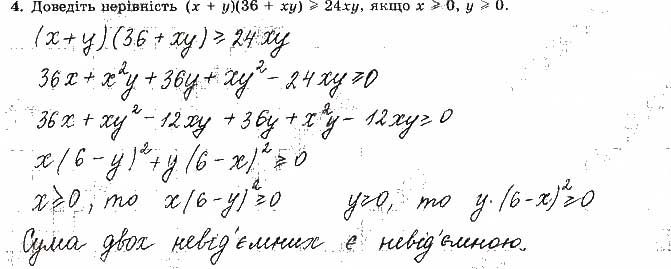 4. Доведіть нерівність (x + y)(36 + xy) ⩾ 24xy, якщо x ⩾ 0, y ⩾ 0.
(x+y)(36+xy) ≥ 24xy
36x + x²y + 36y + xy² - 24xy ≥ 0
36x + xy² - 12xy + 36y + x²y - 12xy ≥ 0
x(6-y)² + y(6-x)² ≥ 0
x ≥ 0, то x(6-y)² ≥ 0 y ≥ 0, то y·(6-x)² ≥ 0
Сума двох невід'ємних є невід'ємною.